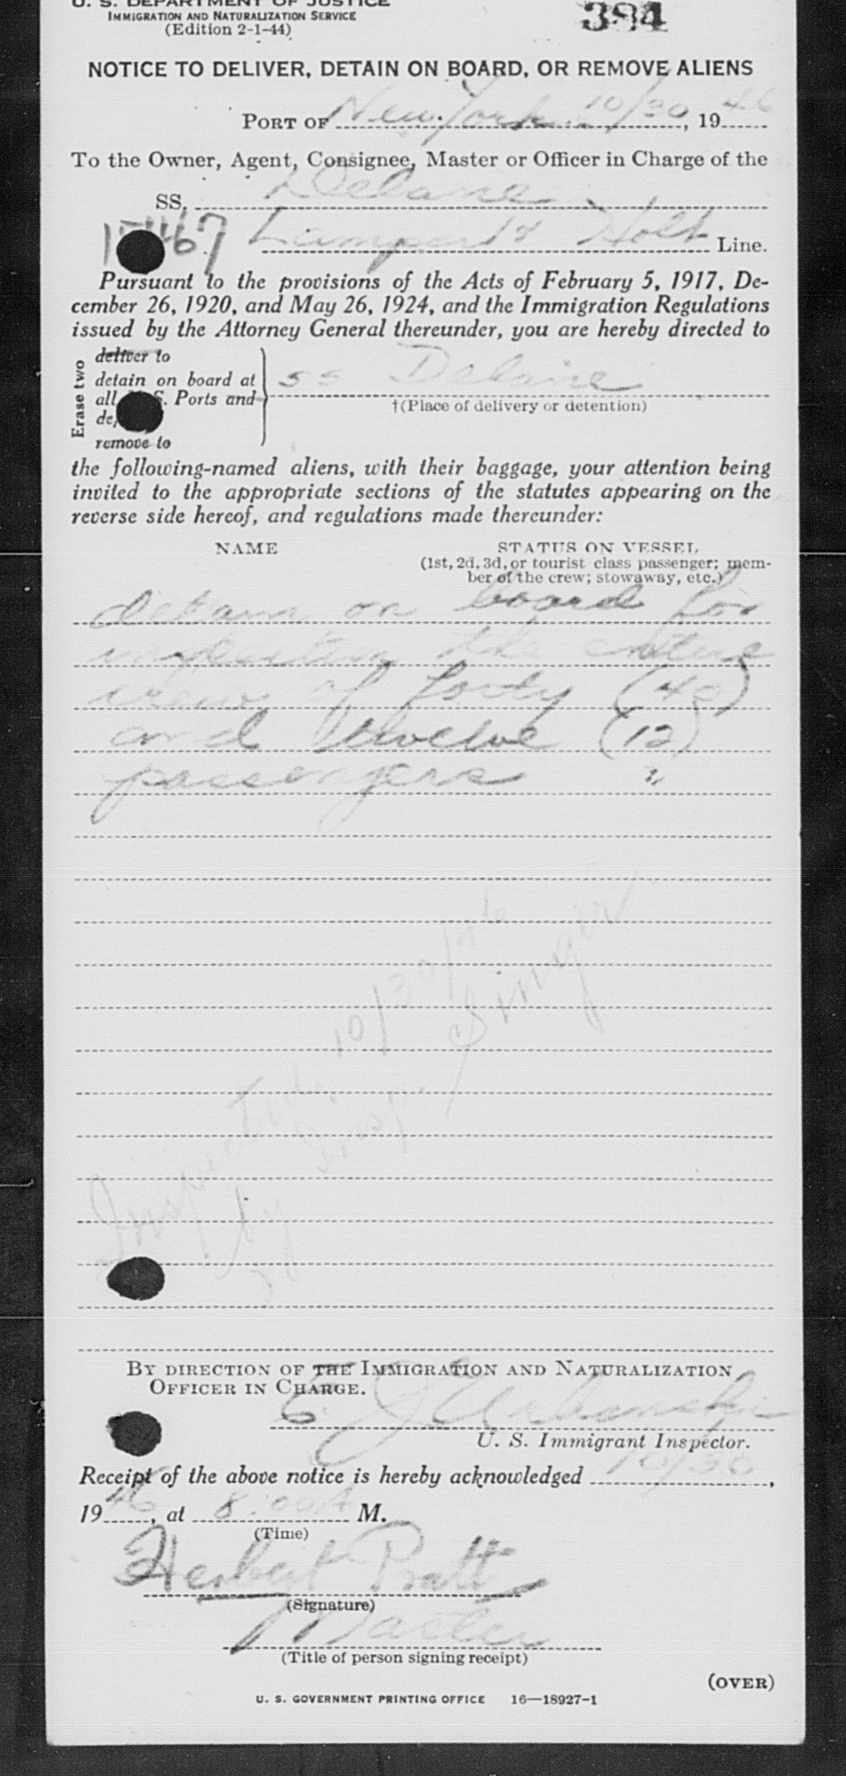 U. S. DEPARTMENT OF JUSTICE
IMMIGRATION AND NATURALIZATION SERVICE
(Edition 2-1-44)
394
NOTICE TO DELIVER, DETAIN ON BOARD, OR REMOVE ALIENS
PORT OF New York 10/30, 1946
To the Owner, Agent, Consignee, Master or Officer in Charge of the
SS. Delane
67 Lamport & Holt Line.
Pursuant to the provisions of the Acts of February 5, 1917, De-
cember 26, 1920, and May 26, 1924, and the Immigration Regulations
issued by the Attorney General thereunder, you are hereby directed to
Erase two
deliver to
detain on board at
all S. Ports and
de
remove to
SS Delane
†(Place of delivery or detention)
the following-named aliens, with their baggage, your attention being
invited to the appropriate sections of the statutes appearing on the
reverse side hereof, and regulations made thereunder:
NAME
STATUS ON VESSEL
(1st, 2d, 3d, or tourist class passenger; mem-
ber of the crew; stowaway, etc.)
detain on board for
inspection the entire
crew of forty (40)
and twelve (12)
passengers
Inspected 10/30/46
by Insp. Singer
BY DIRECTION OF THE IMMIGRATION AND NATURALIZATION
OFFICER IN CHARGE.
E J Urbanski
U. S. Immigrant Inspector.
Receipt of the above notice is hereby acknowledged 10/30,
1946, at 8:00 A M.
(Time)
Herbert Pratt
(Signature)
Master
(Title of person signing receipt)
(OVER)
U. S. GOVERNMENT PRINTING OFFICE 16—18927-1